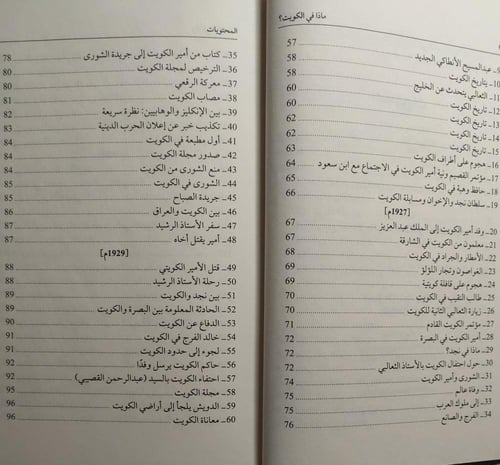 ماذا في الكويت؟
9ـ عبدالمسيح الأنطاكي الجديد 57
10ـ بتاريخ الكويت 58
11ـ الثعالبي يتحدث عن الخليج 58
12ـ تاريخ الكويت 60
13ـ تاريخ الكويت 61
14ـ تاريخ الكويت 62
15ـ تاريخ الكويت 62
16ـ هجوم على أطراف الكويت 63
17ـ مؤتمر القصيم ونية أمير الكويت في الاجتماع مع ابن سعود 64
18ـ حافظ وهبة في الكويت 65
19ـ سلطان نجد والإخوان ومسابلة الكويت 66
[1927م]
20ـ وفد أمير الكويت إلى الملك عبد العزيز 67
21ـ معلمون من الكويت في الشارقة 67
22ـ الأمطار والجراد في الكويت 68
23ـ الغواصون وتجار اللؤلؤ 68
24ـ هجوم على قافلة كويتية 69
25ـ طالب النقيب في الكويت 69
26ـ زيارة الثعالبي الثانية للكويت 70
27ـ مؤتمر الكويت القادم 71
28ـ أمير الكويت في البصرة 70
29ـ ماذا في نجد؟ 72
30ـ حول احتفال الكويت بالأستاذ الثعالبي 72
31ـ الشورى وأمير الكويت 74
32ـ وفاة عالم
33ـ إلى ملوك العرب
34ـ الفرج والصانع 76
المحتويات
35ـ كتاب من أمير الكويت إلى جريدة الشورى 78
36ـ الترخيص لمجلة الكويت 80
37ـ معركة الرقعي 80
38ـ مصاب الكويت 81
39ـ بين الإنكليز والوهابيين: نظرة سريعة 82
40ـ تكذيب خبر عن إعلان الحرب الدينية 83
41ـ أول مطبعة في الكويت 84
42ـ صدور مجلة الكويت 84
43ـ منع الشورى من الكويت 84
44ـ الشورى في الكويت 85
45ـ جريدة الصباح 85
46ـ بين الكويت والعراق 86
47ـ سفر الأستاذ الرشيد 87
48ـ أمير يقتل أخاه 87
[1929م]
49ـ قتل الأمير الكويتي 88
50ـ رحلة الأستاذ الرشيد 88
51ـ بين نجد والكويت 89
52ـ الحادثة المعلومة بين البصرة والكويت 90
53ـ الدفاع عن الكويت 90
54ـ خالد الفرج في الكويت 91
55ـ لجوء إلى حدود الكويت 91
56ـ حاكم الكويت يرسل وفدًا 92
57ـ احتفاء الكويت بالسيد (عبدالرحمن القصيبي) 92
58ـ مجلة الكويت 95
59ـ الدويش يلجأ إلى أراضي الكويت 96
60ـ معاناة الكويت 96